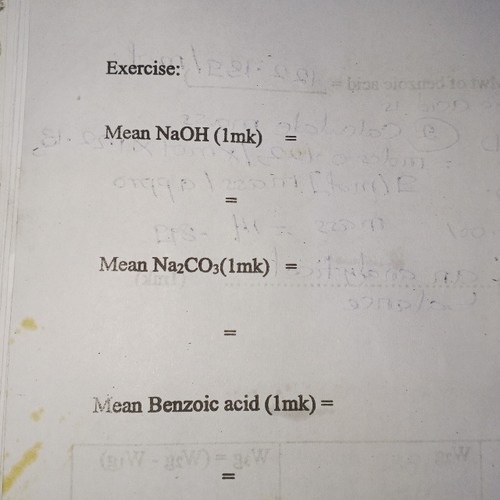 Exercise:
Mean NaOH (1mk) =
=
Mean Na₂CO₃(1mk) =
=
Mean Benzoic acid (1mk) =
=